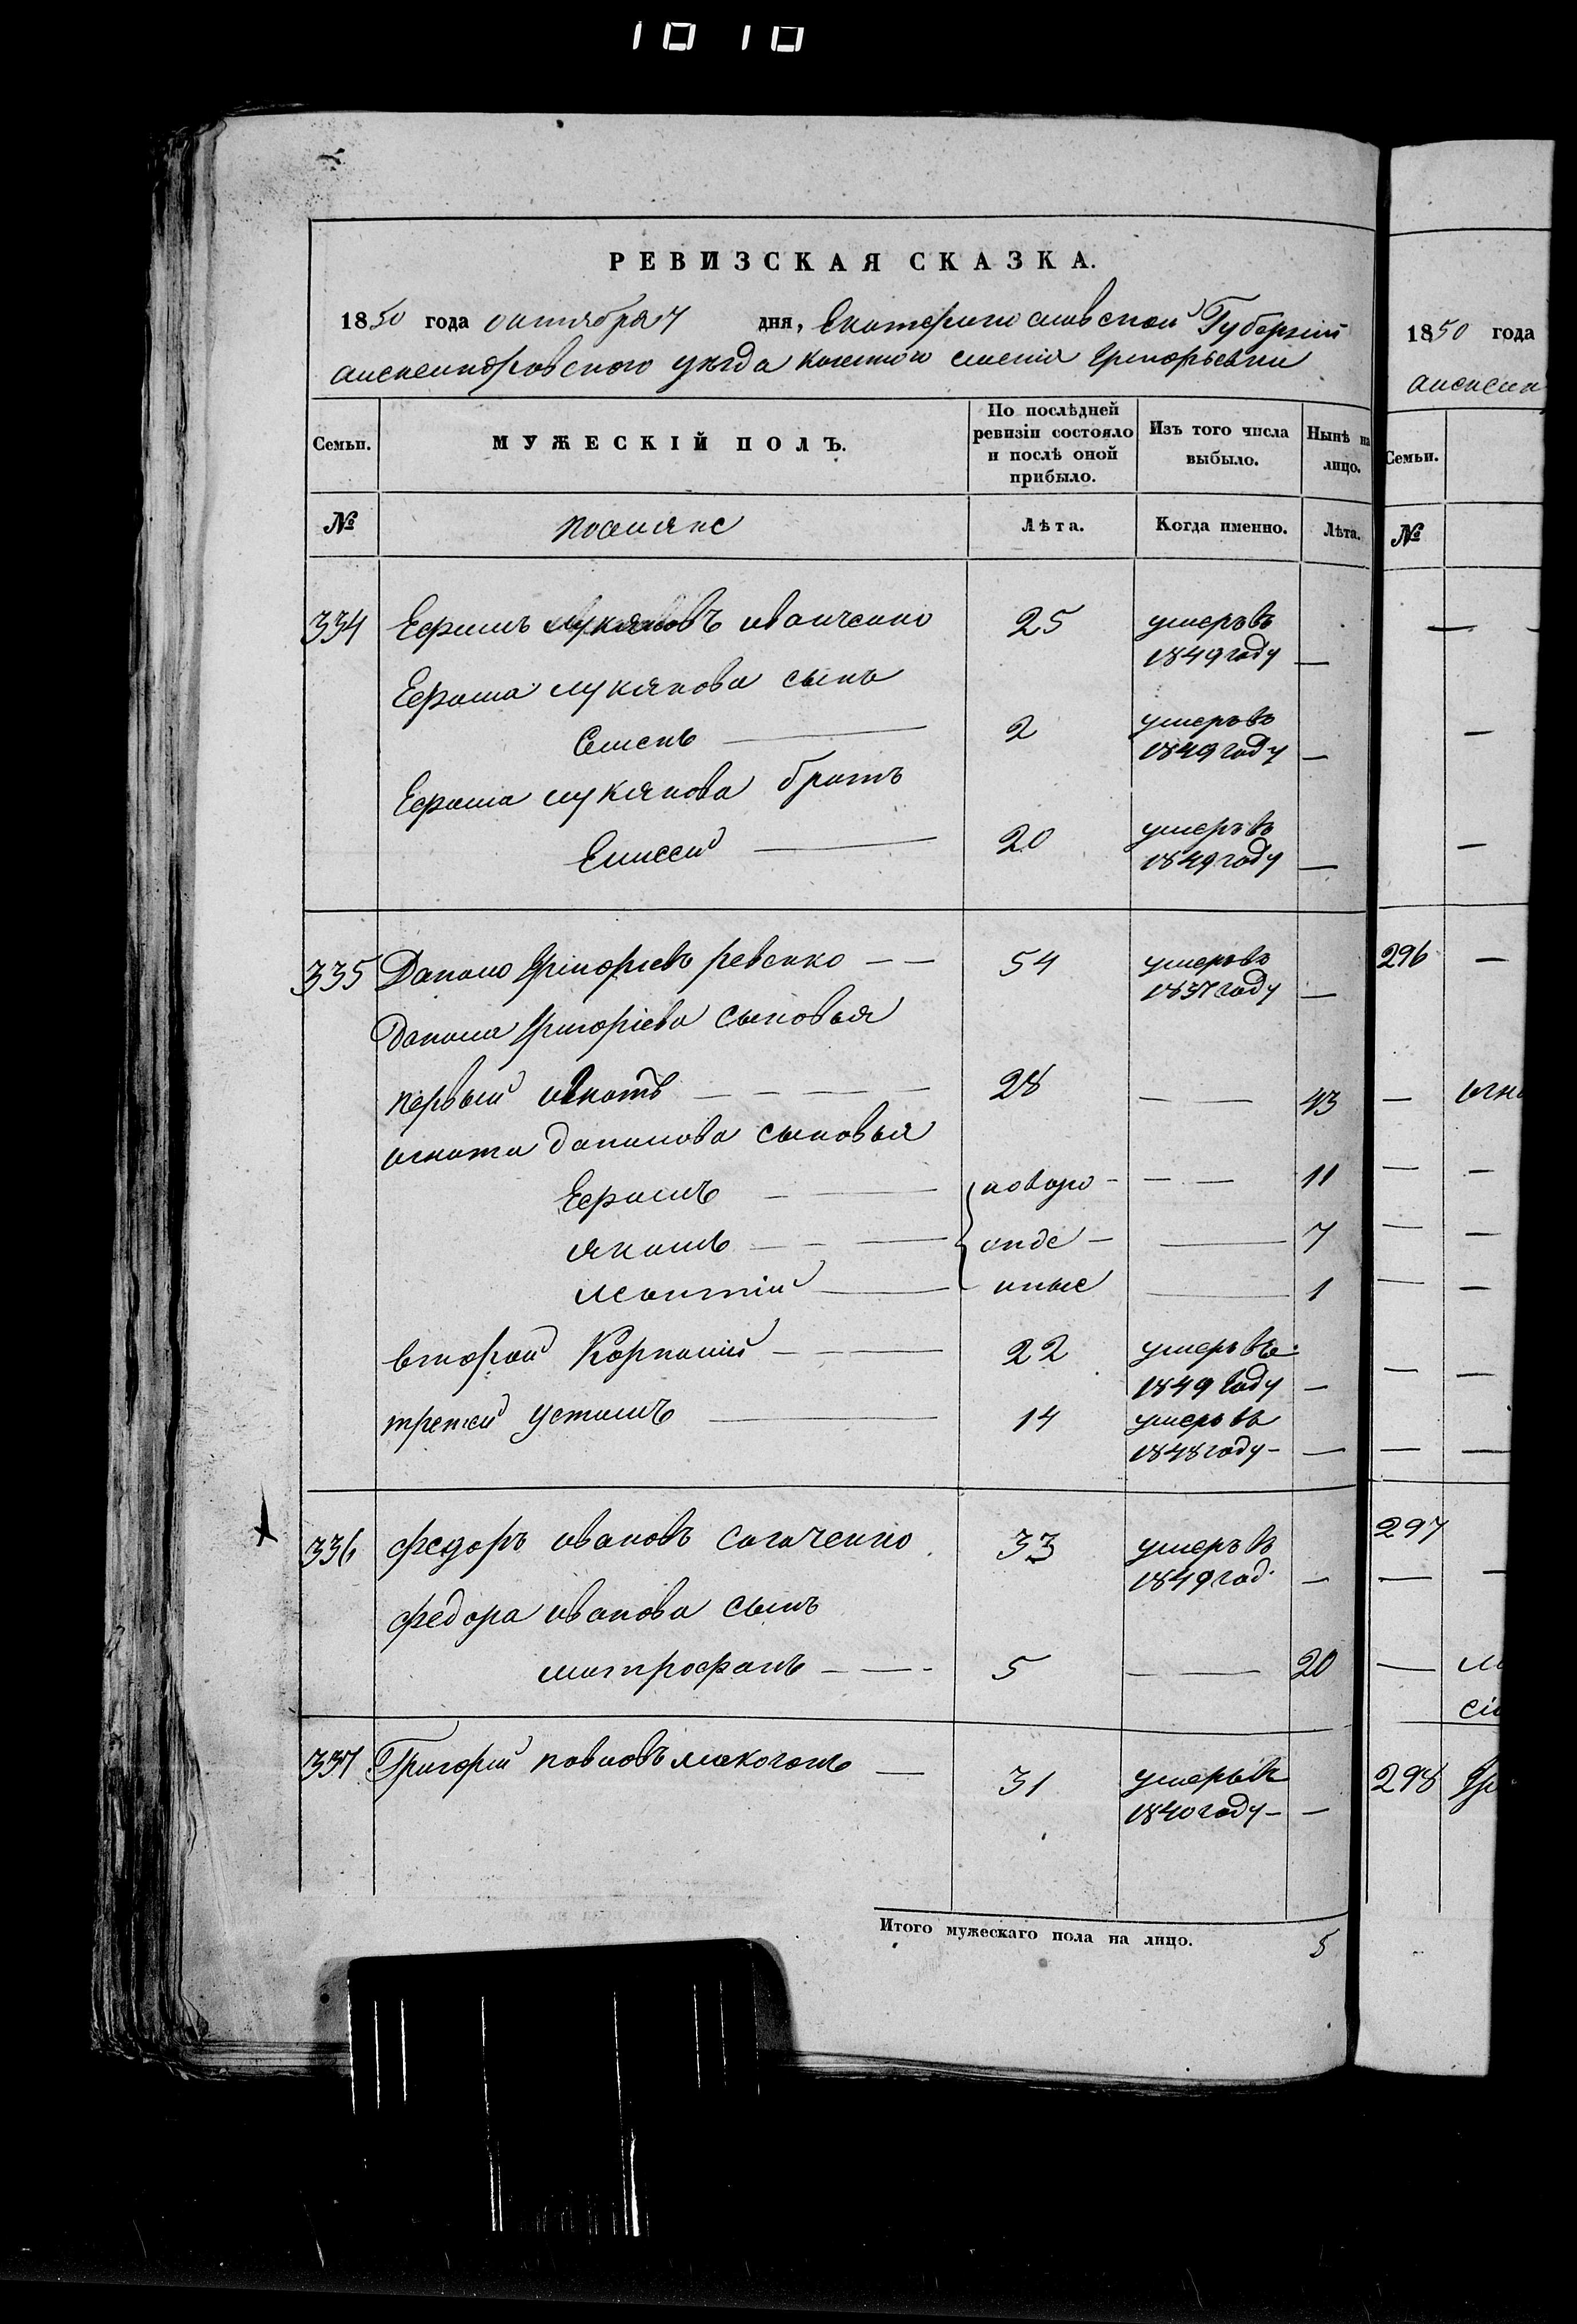 1010
РЕВИЗСКАЯ СКАЗКА.
1850 года октября 7 дня, Екатеринославской Губернии
александровского уезда казенного селения Григорьевки
Семьи. МУЖЕСКІЙ ПОЛЪ. По послѣдней ревизіи состояло и послѣ оной прибыло. Изъ того числа выбыло. Нынѣ на лицо.
№ поселяне Лѣта. Когда именно. Лѣта.
334 Ефимъ лукяновъ иванченко 25 умеръ въ 1849 году —
Ефима лукянова сынъ
Семенъ — 2 умеръ въ 1849 году —
Ефима лукянова братъ
Елисей — 20 умеръ въ 1849 году —
335 Данило Григориевъ ревенко — — 54 умеръ въ 1837 году —
Данила Григоріева сыновья
первый игнатъ — — — — 28 — — 43
игната данилова сыновья
Ефимъ — — новоро- — — 11
якимъ — — — жде- — 7
леонтій — нные — 1
второй Корнилий — — — 22 умеръ въ 1849 году —
третей устимъ — 14 умеръ въ 1848 году — —
336 федоръ ивановъ сагаченко 33 умеръ въ 1849 год. —
федора иванова сынъ
митрофанъ — — - 5 — — 20
337 Григорий павловъ макогонъ — 31 умеръ въ 1840 году — —
Итого мужескаго пола на лицо. 5
1850 года
Семьи.
№
296 —
297
298